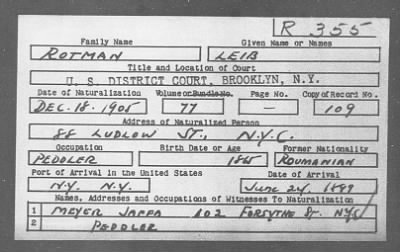 R 355
Family Name Given Name or Names
ROTMAN LEIB
Title and Location of Court
U. S. DISTRICT COURT, BROOKLYN, N.Y.
Date of Naturalization Volume or Bundle No. Page No. Copy of Record No.
DEC. 18. 1905 77 — 109
Address of Naturalized Person
88 LUDLOW ST., N.Y.C.
Occupation Birth Date or Age Former Nationality
PEDDLER 1865 ROUMANIAN
Port of Arrival in the United States Date of Arrival
N.Y. N.Y. JUNE 24, 1889
Names, Addresses and Occupations of Witnesses To Naturalization
1 MEYER JAFFA 102 FORSYTHE ST. NYC
2 PEDDLER